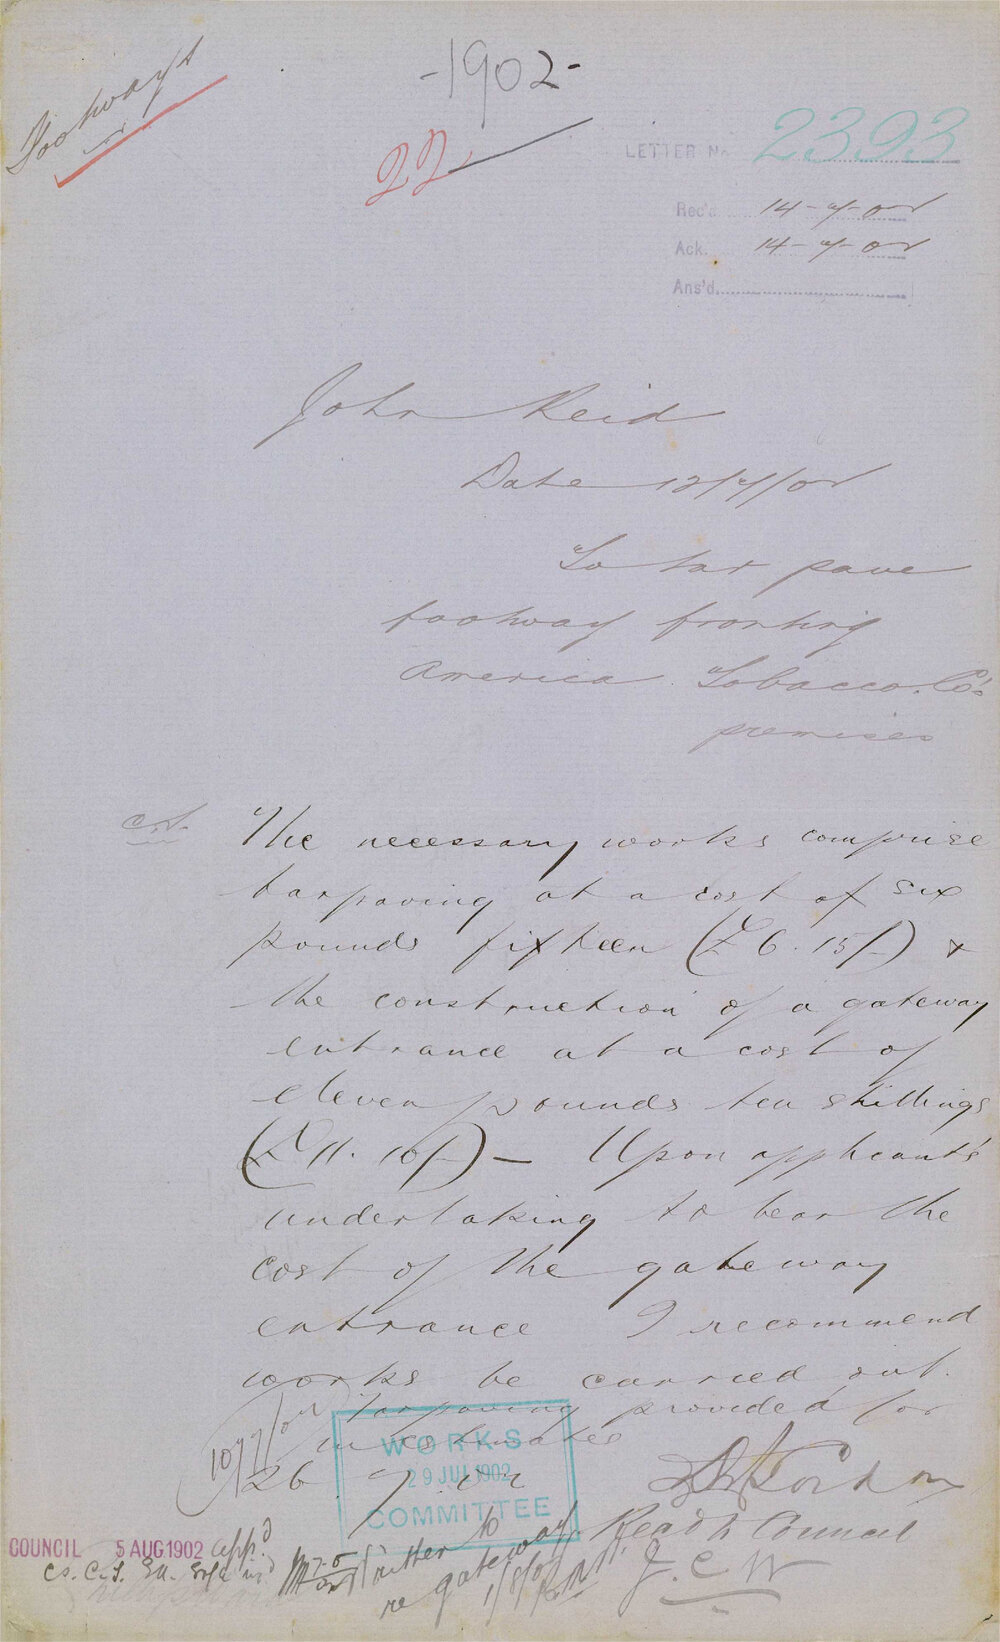 Footways
-1902-
22
LETTER No. 2393
Rec'd 14-7-02
Ack. 14-7-02
Ans'd.
John Reid
Date 12/7/02
To tar pave
footway fronting
America Tobacco Co's
premises
The necessary works comprise
tarpaving at a cost of six
pounds fifteen (£6.15/-) &
the construction of a gateway
entrance at a cost of
eleven pounds ten shillings
(£11.10/-) — Upon applicant's
undertaking to bear the
cost of the gateway
entrance I recommend
works be carried out.
Tarpaving provided for
in estimates
1077/02
26.7.02
WORKS
29 JUL 1902
COMMITTEE
Read to Council
J.C.W
COUNCIL 5 AUG 1902 app'd
written to
re gateway
1/8/02